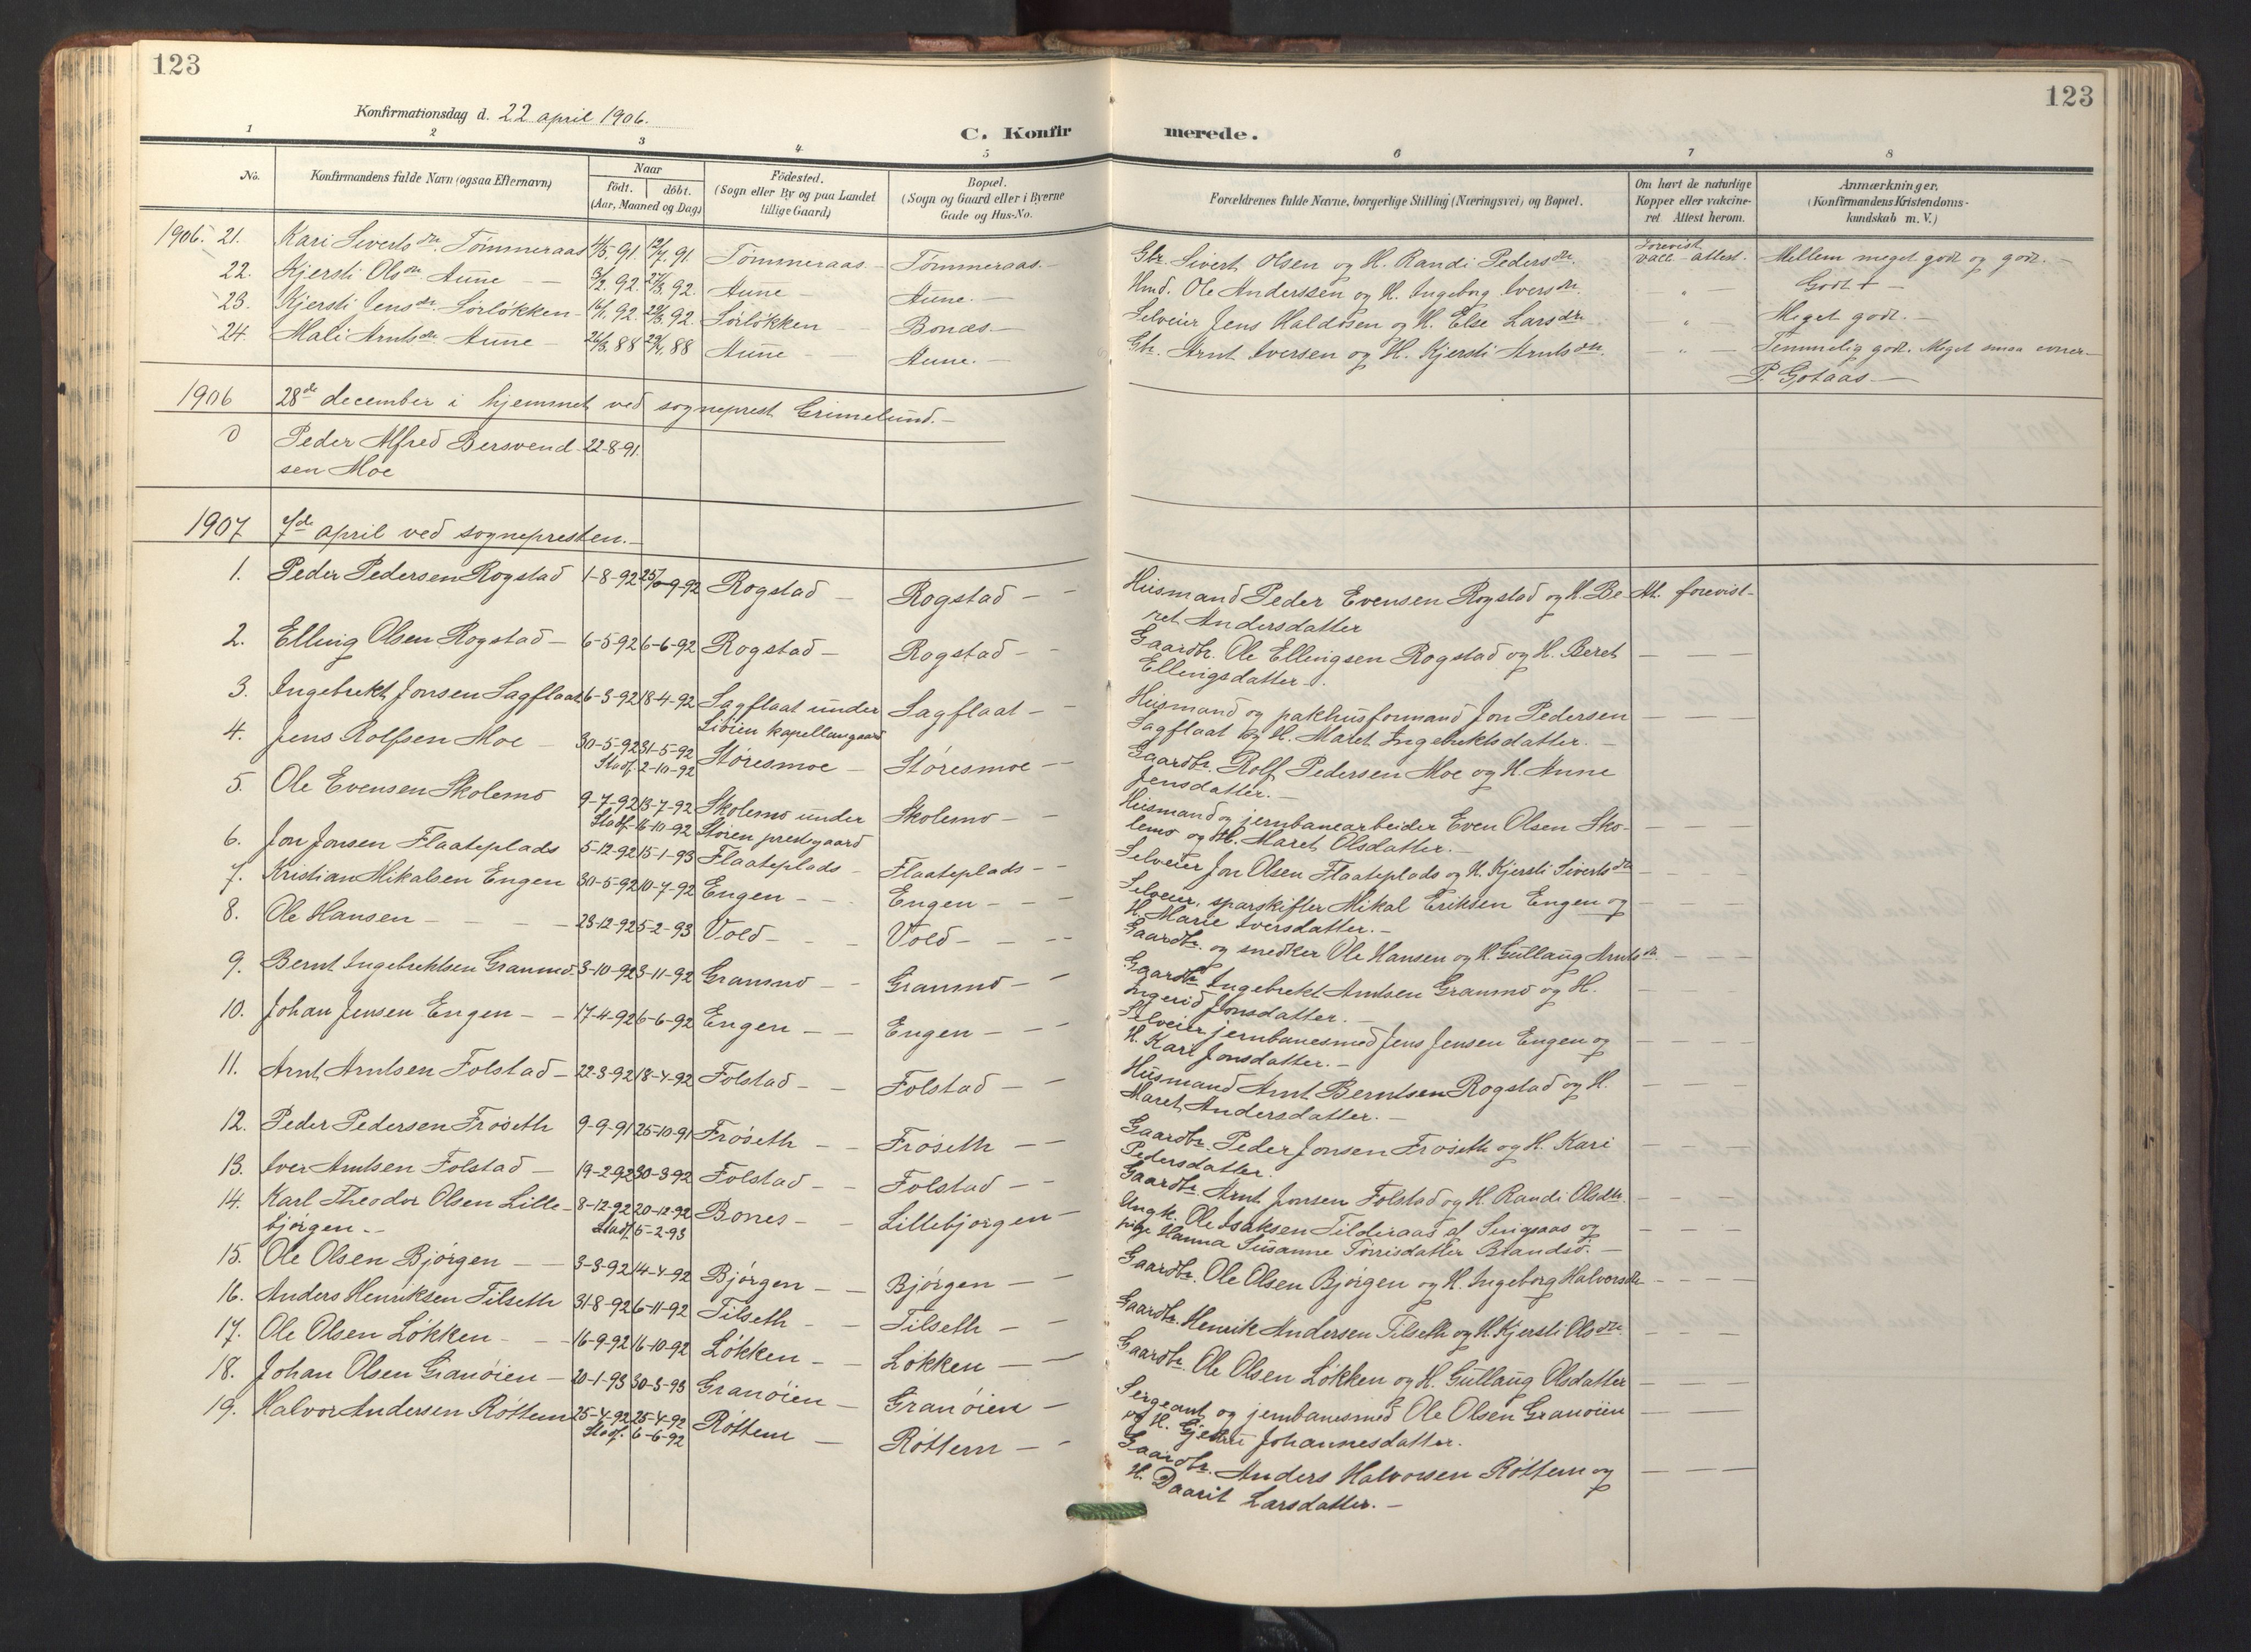 123
123
Konfirmationsdag d. 22 april 1906.
C. Konfir merede.
1 2 3 4 5 6 7 8
No. Konfirmandens fulde Navn (ogsaa Efternavn) Naar födt. döbt. (Aar, Maaned og Dag) Födested. (Sogn eller By og paa Landet tillige Gaard) Bopæl. (Sogn og Gaard eller i Byerne Gade og Hus-No. Forældrenes fulde Navne, borgerlige Stilling (Næringsvei) og Bopæl. Om havt de naturlige Kopper eller vakcineret. Attest herom. Anmærkninger. (Konfirmandens Kristendomskundskab m. V.)
1906. 21. Kari Siverts dtr. Tömmeraas 4/5. 91. 12/7. 91. Tömmeraas. – Tömmeraas. – Gbr. Sivert Olsen og H. Randi Peders dtr. Forevist vacc. attest. Mellem meget godt og godt. –
22. Kjersti Ols dtr. Aune – – 3/2. 92. 27/3. 92. Aune – Aune. – Hmd. Ole Anderssen og H. Ingeborg Ivers dtr. – „ – Godt + –
23. Kjersti Jens dtr. Sörlökken – 16/1. 92. 27/3. 92. Sörlökken – Bonæs – Selveier Jens Haldosen og H. Else Lars dtr. – „ – Meget godt. –
24. Mali Arnts dtr. Aune – 26/3. 88 29/4. 88 Aune – Aune. – Gbr. Arnt Iversen og H. Kjersti Arnts dtr. – „ – Temmelig godt. Meget smaa evner –
P. Gotaas –
1906 28de december i hjemmet ved sogneprest Grimelund. –
0 Peder Alfred Bersvend- 22-8-91.
sen Moe
1907 7de april ved sognepresten. –
1. Peder Pedersen Rogstad 1-8-92 25/-9-92 Rogstad – Rogstad – – Husmand Peder Evensen Rogstad og H. Be- Att. forevist –
ret Andersdatter
2. Elling Olsen Rogstad – 6-5-92 6-6-92 Rogstad – Rogstad – – Gaardbr. Ole Ellingsen Rogstad og H. Beret – – –
Ellingsdatter –
3. Ingebrekt Jonsen Sagflaat 6-3-92 18-4-92 Sagflaat under Sagflaat – – Husmand og pakhusformand Jon Pedersen – – –
Liöien kapellangaard Sagflaat og H. Maret Ingebrektsdatter. –
4. Jens Rolfsen Moe – 30-5-92 31-5-92 Störesmoe – Störesmoe – – Gaardbr. Rolf Pedersen Moe og H. Anne
Stadf. 2-10-92 Jensdatter. –
5. Ole Evensen Skolemo 9-7-92 13-7-92 Skolemo under Skolemo – – Husmand og jernbanearbeider Even Olsen Sko- – – –
Stadf. 16-10-92 Stören prestegaard lemo og H. Maret Olsdatter. –
6. Jon Jonsen Flaateplads 5-12-92 15-1-93 Flaateplads – Flaateplads – – Selveier Jon Olsen Flaateplads og H. Kjersti Siverts dtr – – –
7. Kristian Mikalsen Engen 30-5-92 10-7-92 Engen – – Engen – – – Selveier, sparskifter Mikal Eriksen Engen og – – –
H. Marie Iversdatter. –
8. Ole Hansen – – – 23-12-92 5-2-93 Vold – – – Vold – – – Gaardbr. og snedker Ole Hansen og H. Gullaug Arnts dtr. – – –
9. Bernt Ingebrektsen Granmo 3-10-92 3-11-92 Granmo – – Granmo – – Gaardbr. Ingebrekt Arntsen Granmo og H. – – –
Ingerid Jonsdatter. –
10. Johan Jensen Engen – – 17-4-92 6-6-92 Engen – – Engen – – – Selveier, jernbanesmed Jens Jensen Engen og – – –
H. Kari Jonsdatter. –
11. Arnt Arntsen Folstad – 22-3-92 18-4-92 Folstad – – Folstad – – Husmand Arnt Berntsen Rogstad og H. – – –
Maret Andersdatter. –
12. Peder Pedersen Fröseth 9-9-91 25-10-91 Fröseth – Fröseth – – Gaardbr. Peder Jonsen Fröseth og H. Kari – – –
Pedersdatter.
13. Iver Arntsen Folstad – 19-2-92 30-3-92 Folstad – – Folstad – – Gaardbr. Arnt Jonsen Folstad og H. Randi Olsdtr. – – –
14. Karl Theodor Olsen Lille- 8-12-92 20-12-92 Bones – – Lillebjörgen – Ungk. Ole Isaksen Tilderaas af Singsaas og – – –
björgen – – Stadf. 5-2-93 pige Hanna Susanne Törrisdatter Brandsö. –
15. Ole Olsen Björgen – – 3-3-92 14-4-92 Björgen – – Björgen – – Gaardbr. Ole Olsen Björgen og H. Ingeborg Halvorsdtr – – –
16. Anders Henriksen Tilseth 31-8-92 6-11-92 Tilseth – – Tilseth – – Gaardbr. Henrik Andersen Tilseth og H. Kjersti Ols dtr. – – –
17. Ole Olsen Lökken – – 16-9-92 16-10-92 Lökken – – Lökken – – Gaardbr. Ole Olsen Lökken og H. Gullaug Olsdatter – – –
18. Johan Olsen Granöien – 20-1-93 30-3-93 Granöien – Granöien – Sergeant og jernbanesmed Ole Olsen Granöien – – –
og H. Gjertru Johannesdatter.
19. Halvor Andersen Röttum 25-4-92 25-4-92 Röttum – Röttern – – Gaardbr. Anders Halvorsen Röttum og – – –
Stadf. 6-6-92 H. Daarit Larsdatter. –